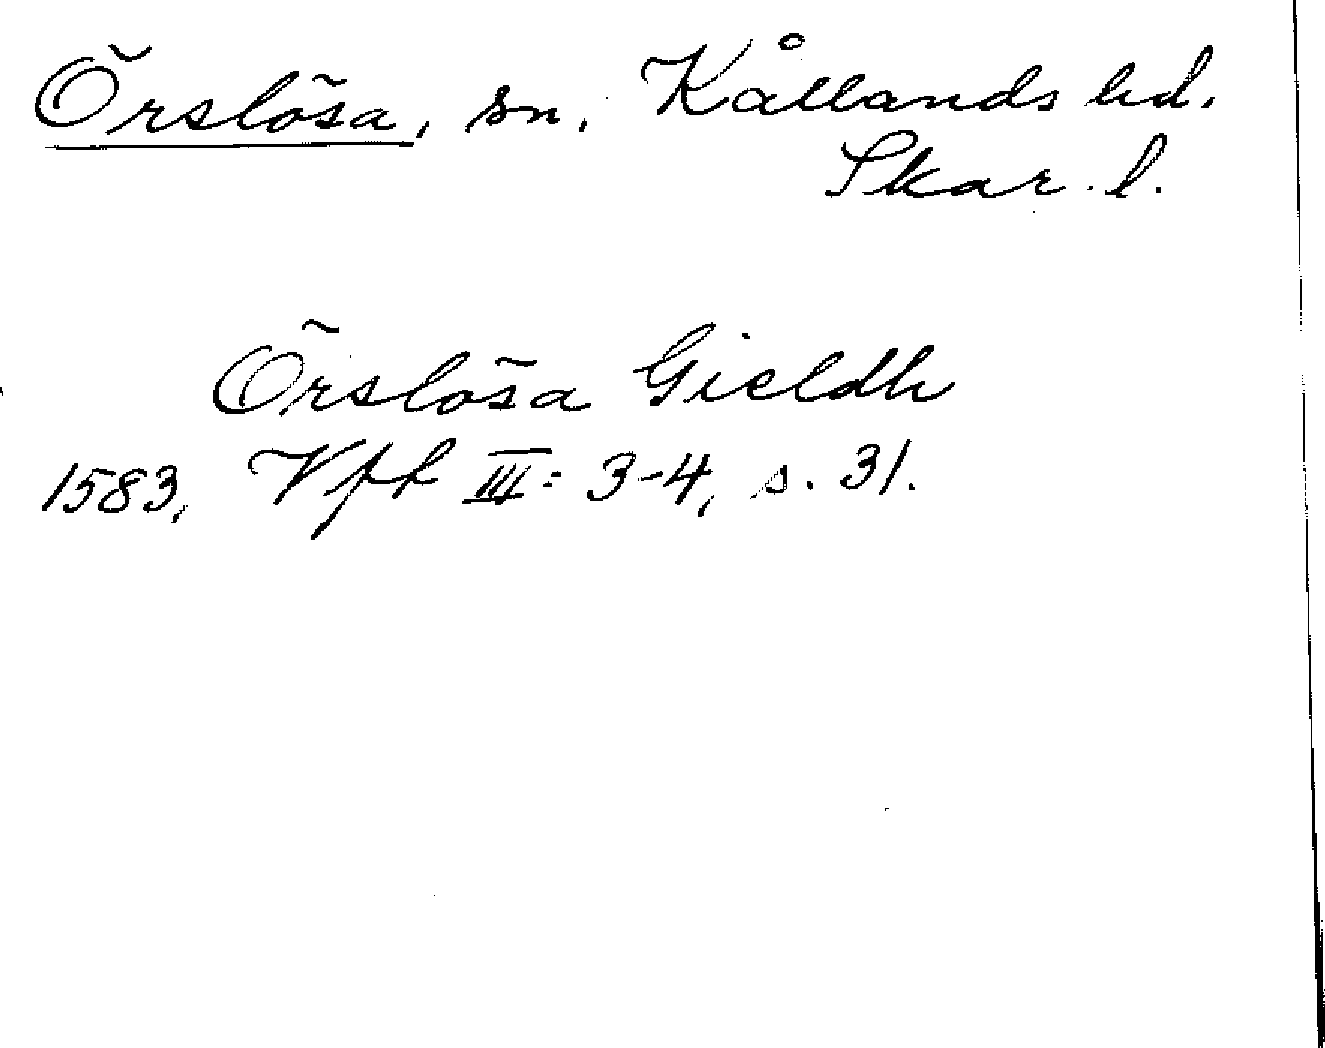 Örslösa, sn. Kållands hd.
Skar. l.
Örslösa Gieldh
1583, Vft III: 3-4, s. 31.